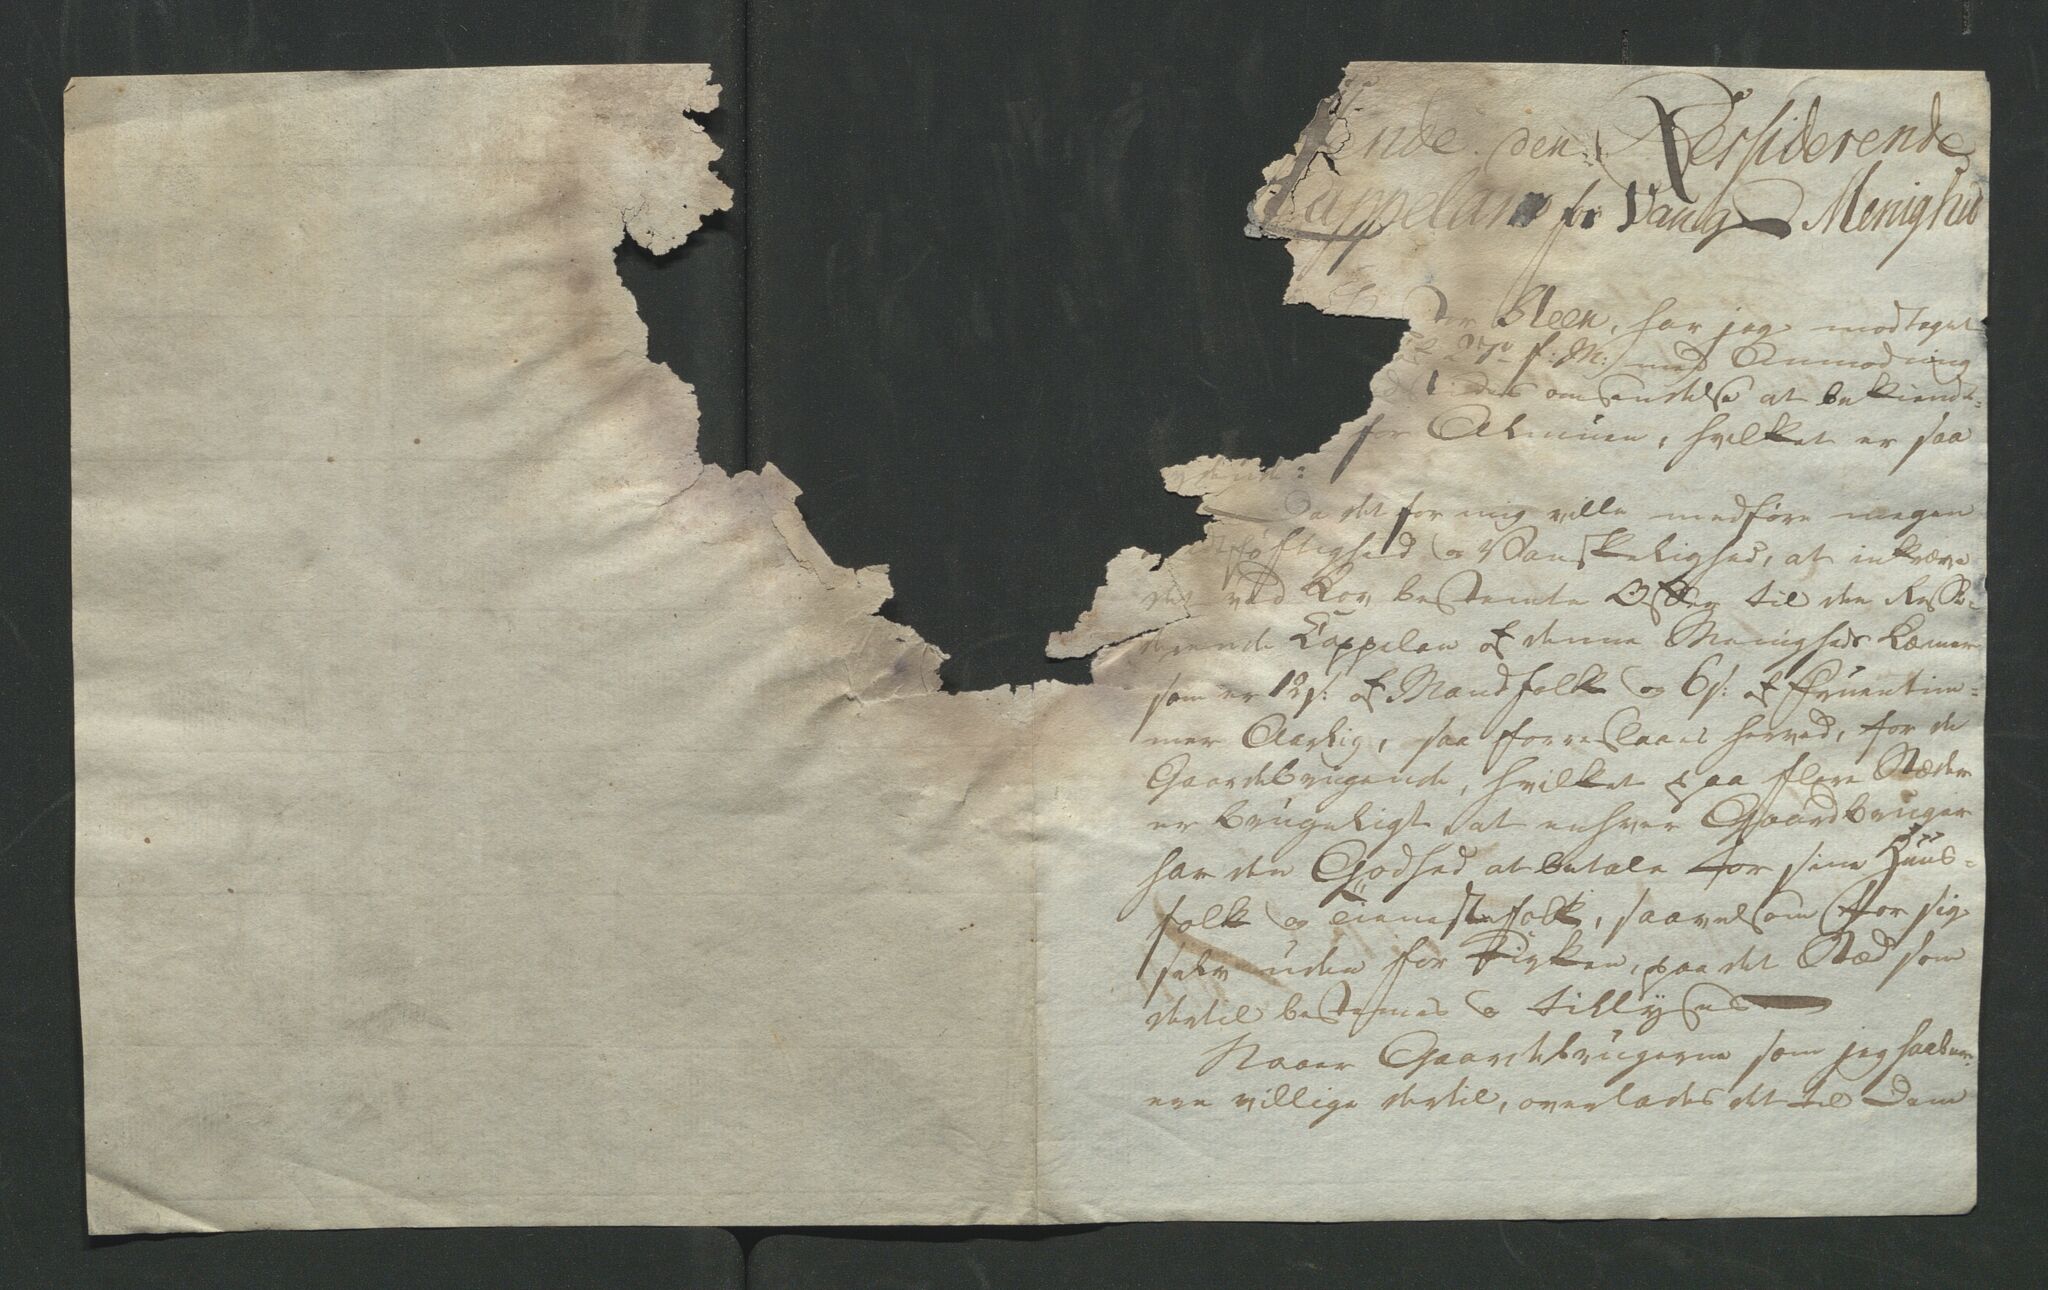 ende den Ressiderende
Cappelan for Vang Menighed
der Steen, har jeg modtaget
af 27de f: M: med Anmodning
Bÿdes omsendelse at bekiendt=
for Almuen, hvilket er saa
lydende:
Da det for mig ville medføre megen
Vidtløftighed og Vanskelighed, at inkræve
det ved Lov bestemte Offer til den Ressi=
derende Cappelan af denne Menigheds Lemmer
som er 12 s: af Mandfolk og 6 s: af Fruentim=
mer Aarlig, saa forreslaaes herved, for de
Gaardebrugende, hvilket paa flere Stæder
er brugeligt at enhver Gaardbruger
har den Godhed at betale for sine Huus=
folk og Tienestefolk, saavelsom for sig
selv uden for Kirken, paa det Stæd som
dertil bestemes og tillyses
Naaer Gaardebrugerne som jeg haaber
ere villige dertil, overlades det til Dem